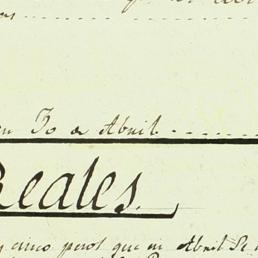 en 30 de Abril
Reales.
y cinco pesos que en Abril Se